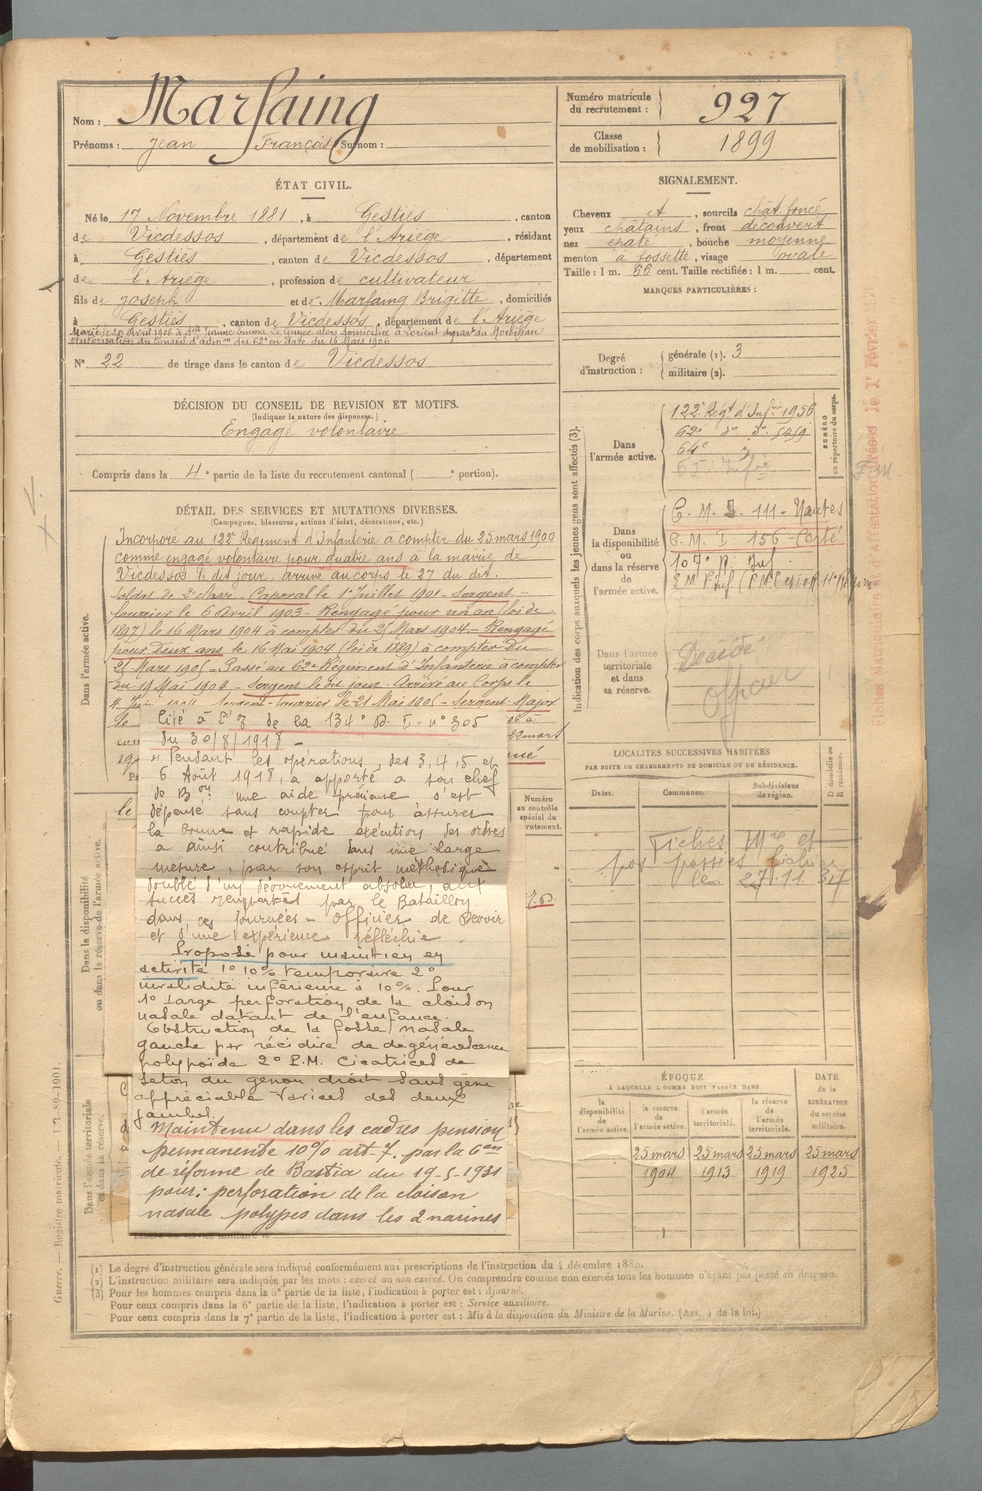 Nom : Marfaing
Prénoms : Jean François Surnom :
Numéro matricule du recrutement : 927
Classe de mobilisation : 1899
ÉTAT CIVIL.
Né le 17 Novembre 1881, à Gestiès, canton
de Vicdessos, département de l'Ariège, résidant
à Gestiès, canton de Vicdessos, département
de l'Ariège, profession de cultivateur
fils de Joseph et de Marfaing Brigitte, domiciliés
à Gestiès, canton de Vicdessos, département de l'Ariège
autorisation du Conseil d'adm^on du 62e en date du 16 Mars 1906
N° 22 de tirage dans le canton de Vicdessos
SIGNALEMENT.
Cheveux et, sourcils chât. foncé
yeux châtains, front découvert
nez épaté, bouche moyenne
menton à fossette, visage ovale
Taille : 1 m. 66 cent. Taille rectifiée : 1 m. cent.
MARQUES PARTICULIÈRES :
Degré d'instruction : générale (1). 3
militaire (2).
DÉCISION DU CONSEIL DE REVISION ET MOTIFS.
(Indiquer la nature des dispenses.)
Engagé volontaire
Compris dans la 4e partie de la liste du recrutement cantonal ( e portion).
DÉTAIL DES SERVICES ET MUTATIONS DIVERSES.
(Campagnes, blessures, actions d'éclat, décorations, etc.)
Dans l'armée active.
Incorporé au 122e Régiment d'Infanterie à compter du 25 mars 1900
comme engagé volontaire pour quatre ans à la mairie de
Vicdessos le dit jour, arrivé au corps le 27 du dit.
Soldat de 2e classe. Caporal le 1er Juillet 1901 - Sergent-
fourrier le 6 Avril 1903 - Rengagé pour un an (loi de
1897) le 16 Mars 1904 à compter du 25 Mars 1904 - Rengagé
pour deux ans le 16 Mai 1904 (loi de 1889) à compter du
25 Mars 1905 - Passé au 62e Régiment d'Infanterie à compter
du 19 Mai 1904 - Sergent le dit jour. Arrivé au Corps le
fourrier le 21 Mai 1905 - Sergent-Major
Cité à l'O. de la 134e D. I. n° 305
du 30/8/1918 -
"Pendant les opérations des 3, 4, 5 et
6 Août 1918, a apporté à son chef
de B^on une aide précieuse s'est
dépensé sans compter pour assurer
la bonne et rapide exécution des ordres
a ainsi contribué dans une large
mesure, par son esprit méthodique
doublé d'un dévouement absolu, aux
succès remportés par le Bataillon
dans ces journées - Officier de devoir
et d'une expérience réfléchie -
Proposé pour maintien en
activité 1° 10% temporaire 2°
invalidité inférieure à 10%. Pour
1° Large perforation de la cloison
nasale datant de l'enfance.
Obstruction de la fosse nasale
gauche par récidive de dégénérescence
polypoïde 2° P.M. Cicatrices de
séton du genou droit sans gêne
appréciable Varices des deux
jambes.
Maintenu dans les cadres pension
permanente 10% art. 7. par la C^on
de réforme de Bastia du 19-5-1931
pour : perforation de la cloison
nasale polypes dans les 2 narines -
Dans la disponibilité ou dans la réserve de l'armée active.
Dans l'armée territoriale et dans sa réserve.
Numéro au contrôle spécial du recrutement.
Indication des corps auxquels les jeunes gens sont affectés (3).
NUMÉRO au répertoire du corps.
Dans l'armée active.
122e Rég^t d'Inf^rie 1956
62e d° d° 5459
64e
65e Inf^ie
Dans la disponibilité ou dans la réserve de l'armée active.
C. M. I. 111 - Nantes
C. M. I. 156 - Corté
107e R. Inf
Dans l'armée territoriale et dans sa réserve.
Décédé
Officier
LOCALITES SUCCESSIVES HABITÉES
PAR SUITE DE CHANGEMENTS DE DOMICILE OU DE RÉSIDENCE.
Dates. Communes. Subdivisions de région. D domicile ou R résidence.
Fiches M^le et
27.11.34
ÉPOQUE
À LAQUELLE L'HOMME DOIT PASSER DANS
la disponibilité de l'armée active. la réserve de l'armée active. l'armée territoriale. la réserve de l'armée territoriale.
DATE de la LIBÉRATION du service militaire.
25 mars 1904 25 mars 1913 25 mars 1919 25 mars 1925
(1) Le degré d'instruction générale sera indiqué conformément aux prescriptions de l'instruction du 4 décembre 1889.
(2) L'instruction militaire sera indiquée par les mots : exercé ou non exercé. On comprendra comme non exercés tous les hommes n'ayant pas passé au drapeau.
(3) Pour les hommes compris dans la 5e partie de la liste, l'indication à porter est : Ajourné.
Pour ceux compris dans la 6e partie de la liste, l'indication à porter est : Service auxiliaire.
Pour ceux compris dans la 7e partie de la liste, l'indication à porter est : Mis à la disposition du Ministre de la Marine. (Art. 4 de la loi.)